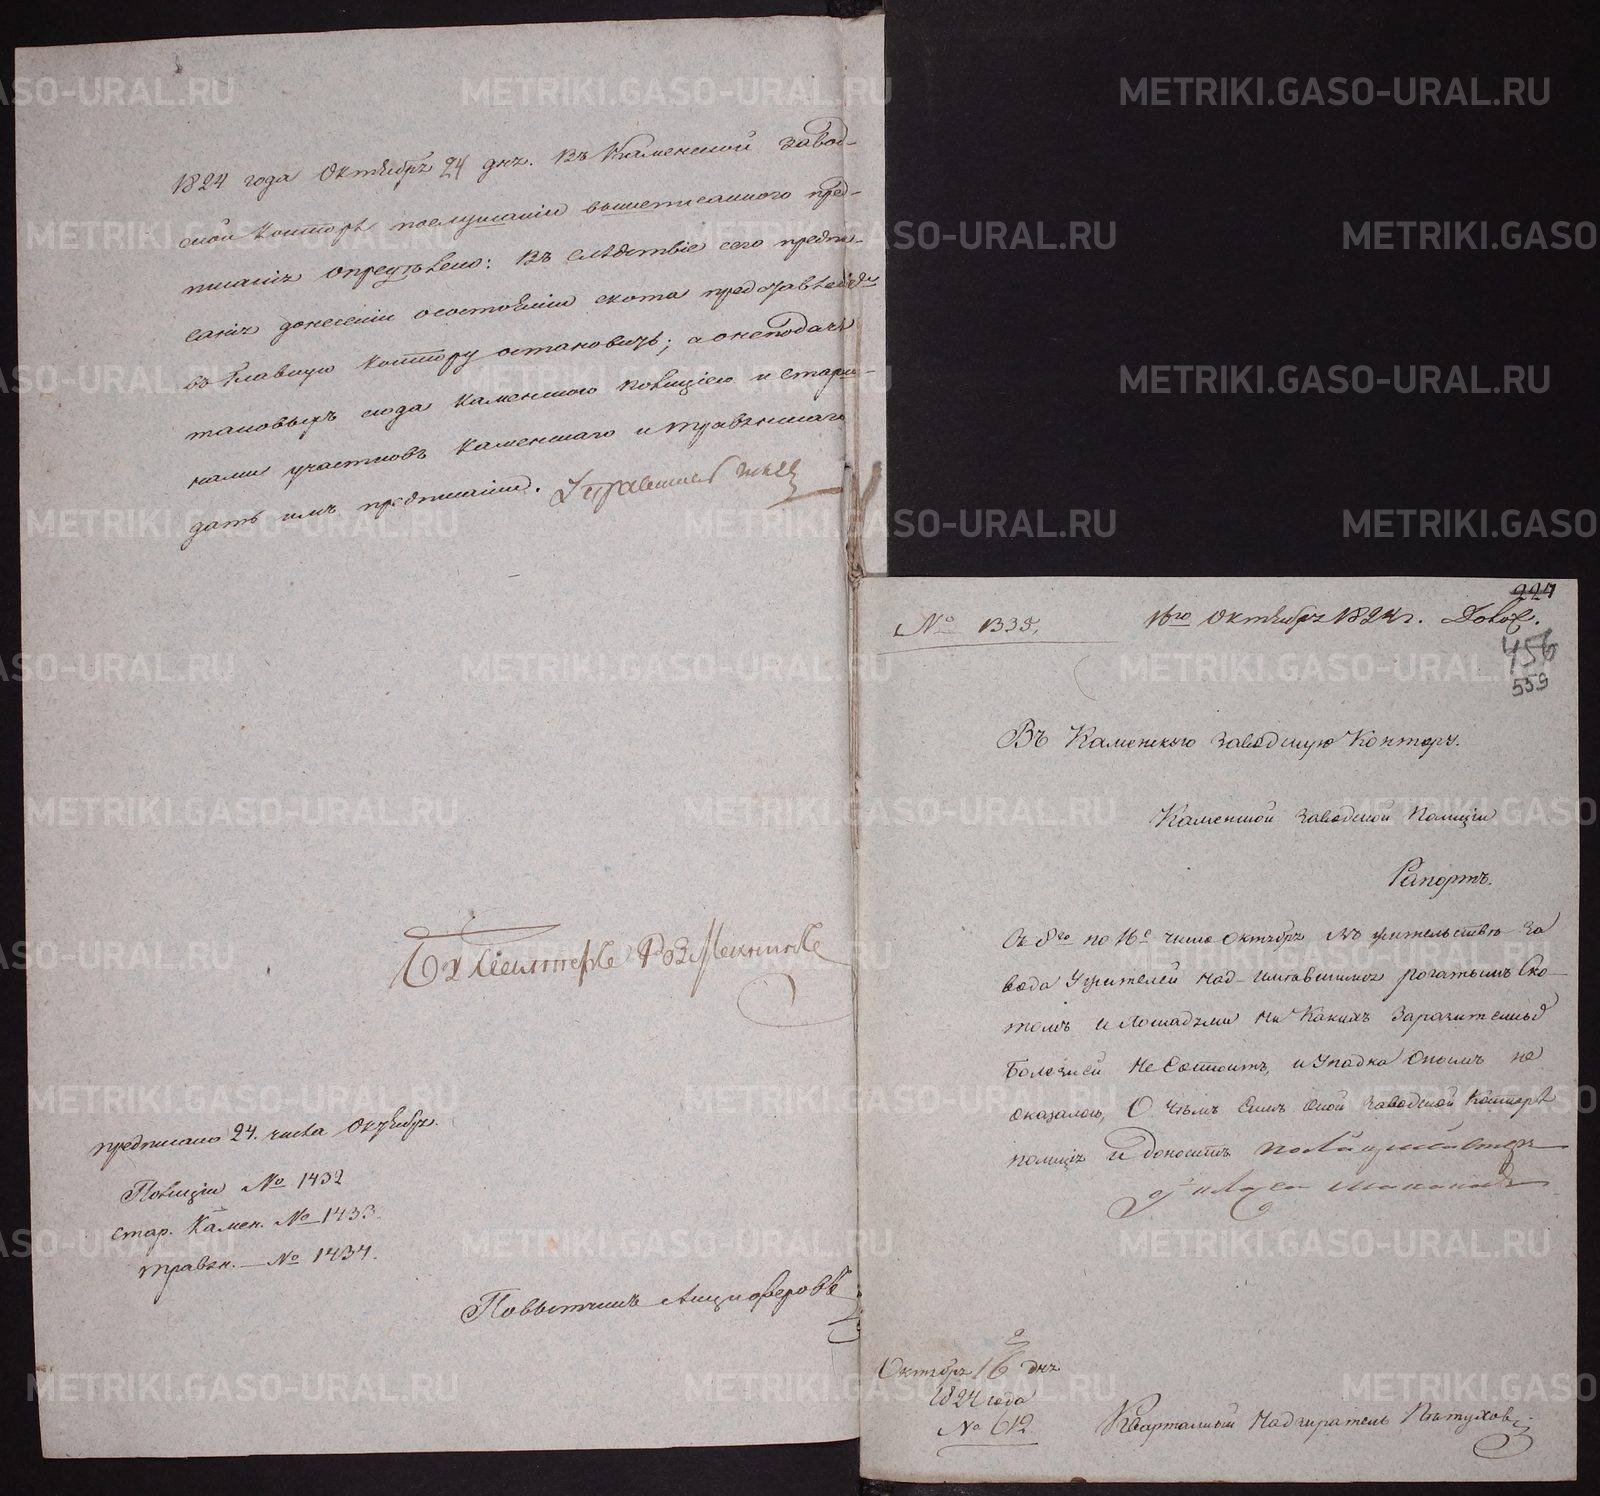 1824 года Октября 24 дня. Въ Каменской завод-
ской Конторѣ послушании вышеписанного пред-
писания Определено: Въ слѣдствiе сего предпи-
сания донесении о состоянии скота
въ Главную Контору остановить; а о неподаче
таковыхъ сюда Каменскою Полицiею и старши-
нами участковъ Каменскаго и Травянскаго
дать имъ предписании.
предписано 24. числа Октября.
Полицiи № 1432
стар. Камен. № 1433.
травян. — № 1434.
Повытчикъ Анциферовъ
№ 1335,
16го Октября 1824 г.
227
456
559
Въ Каменскую Заводскую Контору.
Каменской Заводской Полицiи
Рапортъ.
Съ 8го по 16е число Октября въ жительстве За
вода Жителей над имевшимся рогатымъ Ско-
томъ и Лошадьми Ни Какихъ Заразительныхъ
Болезней Не Состоитъ, и Упадка Онымъ не
оказалось, О чемъ Симъ Оной Заводской Конторѣ
полицiя И доноситъ
Октября 16 дня
1824 года
№ 612
Квартальный Надзиратель Пѣтухов
METRIKI.GASO-URAL.RU